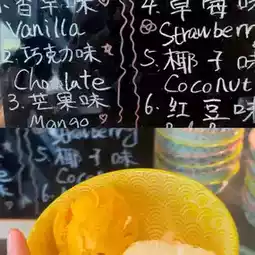 香草味
Vanilla
2.巧克力味
Chocolate
3.苹果味
Mango
4.草莓味
Strawberry
5.椰子味
Coconut
6.红豆味
Strawberry
5.椰子味
Coconut